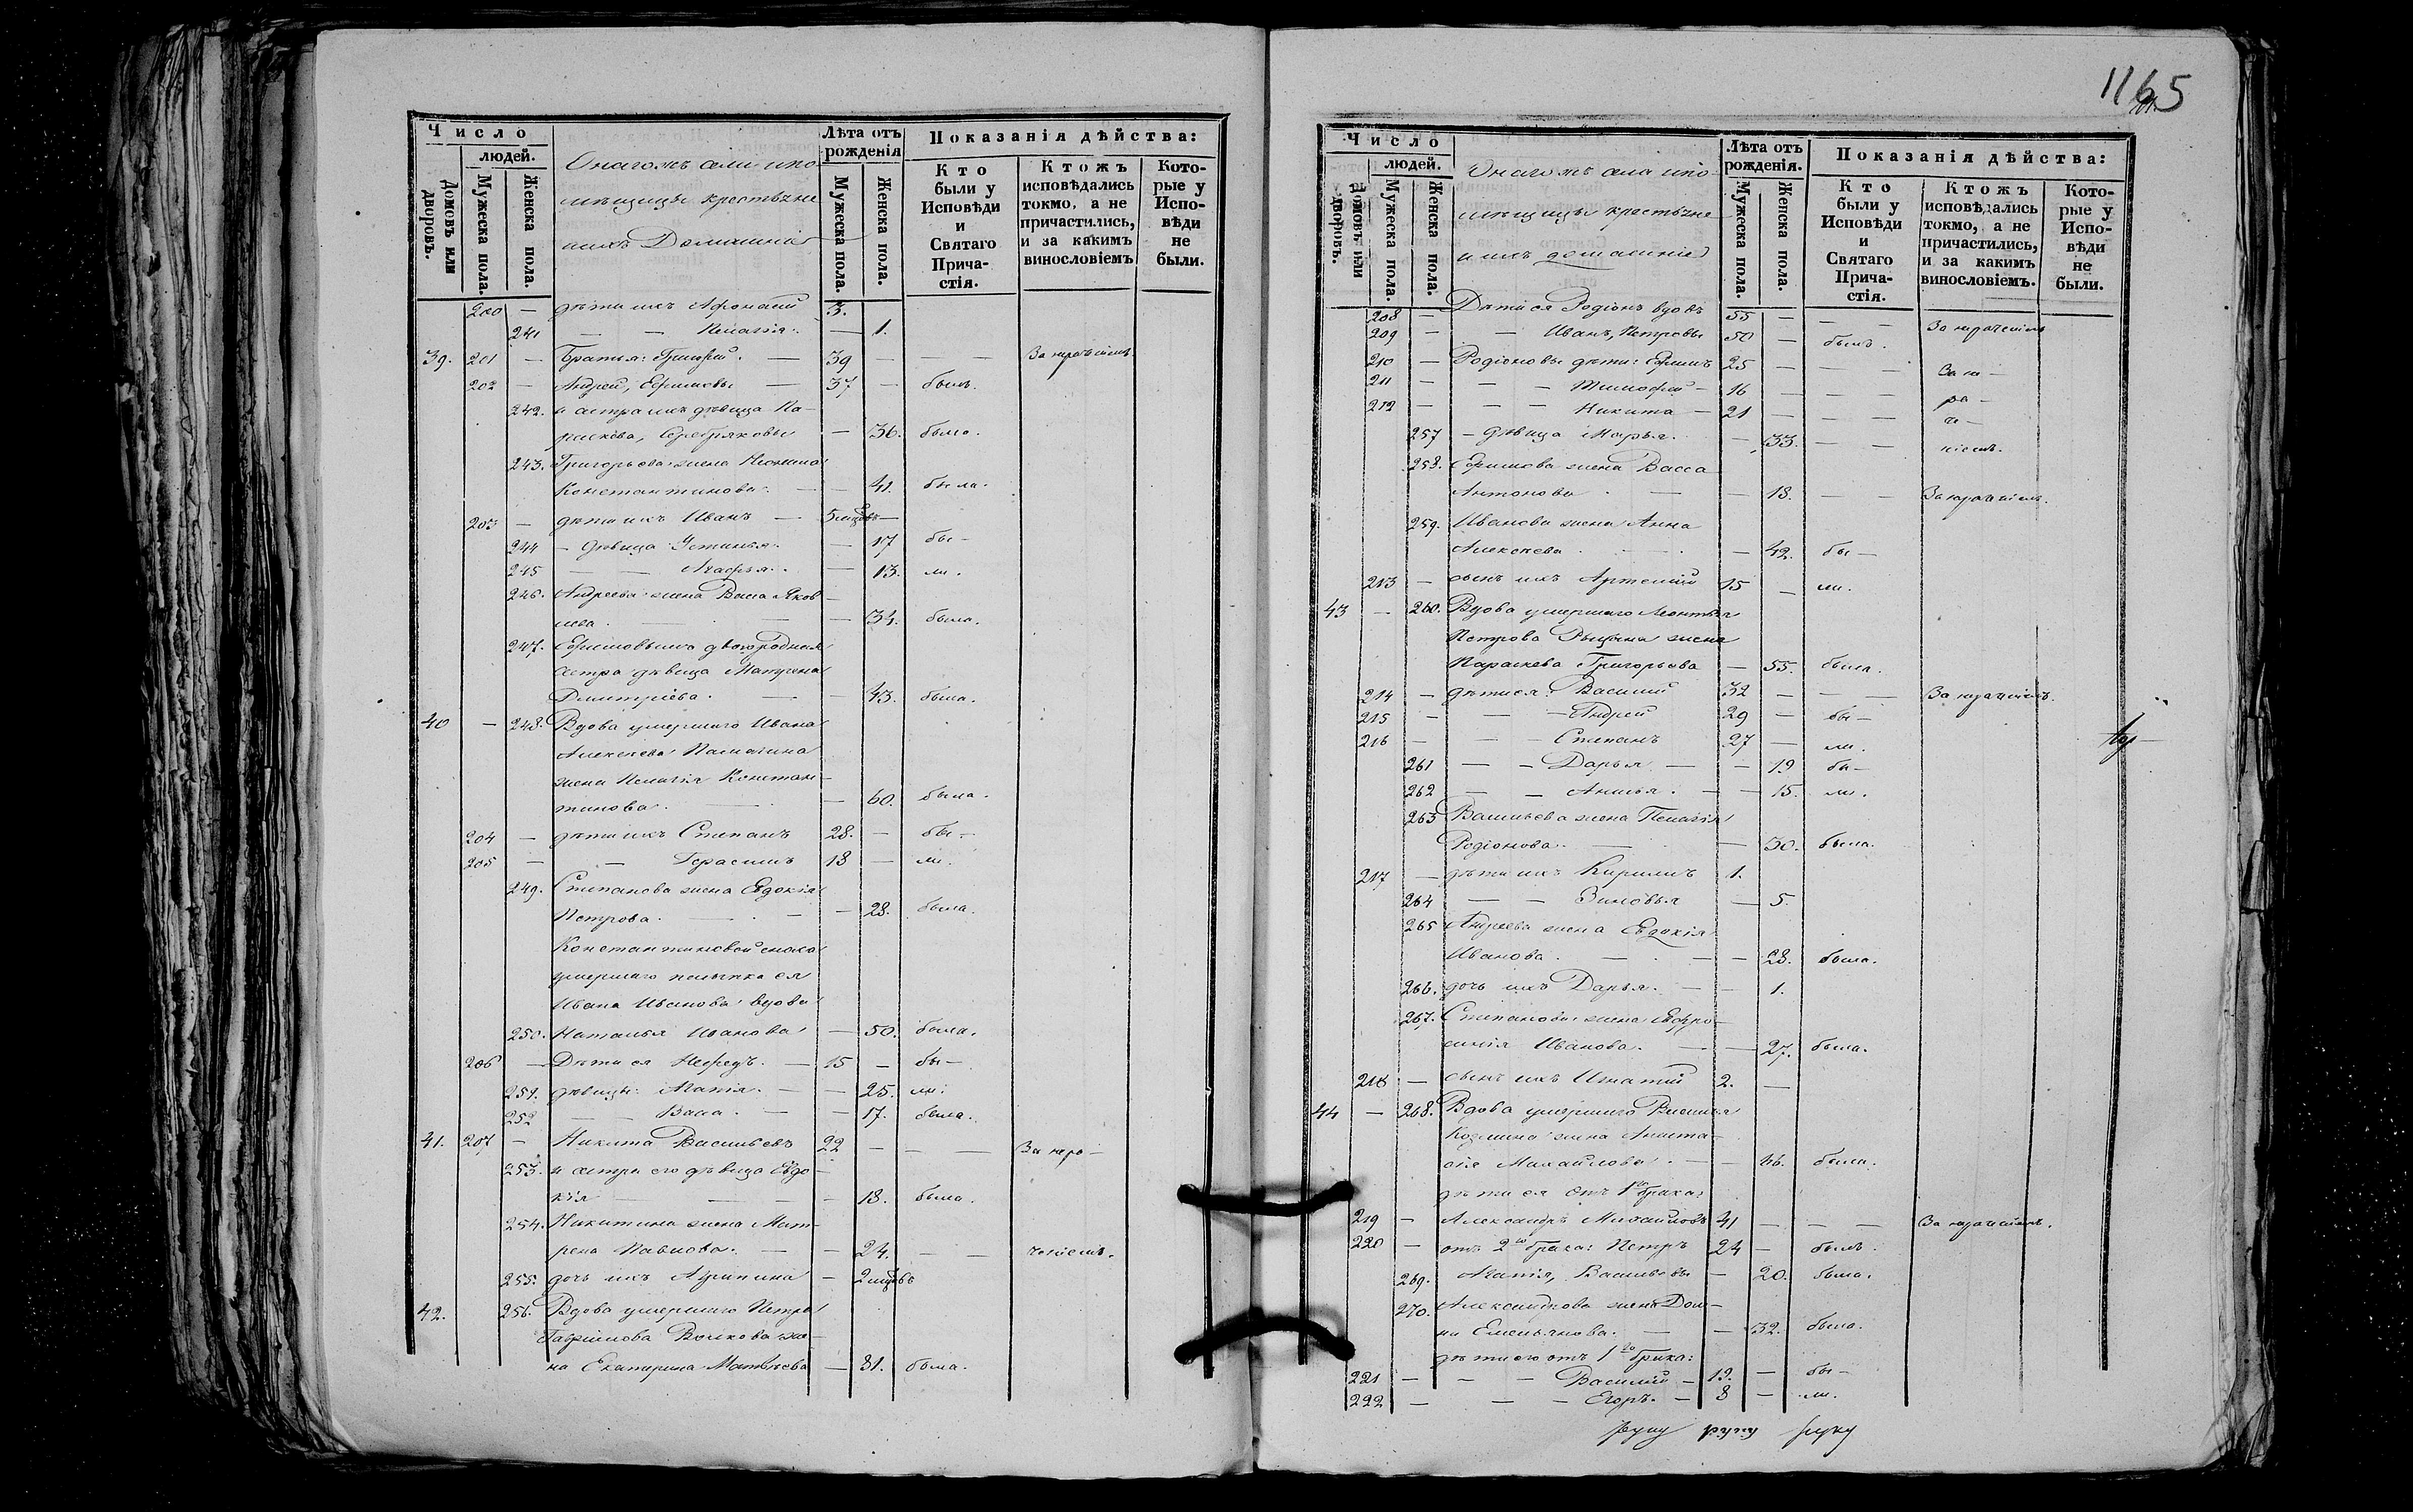 Число
людей.
Домовъ или дворовъ.
Мужеска пола.
Женска пола.
Онагожъ села
крестьяне
ихъ Домашніе
Лѣта отъ рожденія
Мужеска пола.
Женска пола.
Показанія дѣйства:
Кто были у Исповѣди и Святаго Причастія.
Ктожъ исповѣдались токмо, а не причастились, и за какимъ винословіемъ
Которые у Исповѣди не были.
200 — дѣти ихъ Афонасій 3.
241 — — Пелагія. — 1.
39. 201 — Братья: Григорій. — 39 — — За нераченіемъ
202 — Андрей, Ефимовы — 37 — былъ.
242. и сестра ихъ дѣвица Па-
раскева, — 36. была.
243. Григорьева жена
Константинова. — — 41. была.
203 — дѣти ихъ Иванъ —
244 — дѣвица Устинья. — 17 бы-
245 — — Агафья. — 13. ли.
246. Андреева жена Васса Яков-
лева. — — 34. была.
247. Ефимовымъ двоюродная
сестра дѣвица Матрена
Дмитріева. — — 43. была.
40 — 248. Вдова умершаго Ивана
Алексѣева
жена Пелагія Констан-
тинова. — 60. была.
204 — дѣти ихъ Степанъ 28. — бы-
205 — — Герасимъ 18 — ли.
249. Степанова жена Евдокія
Петрова. — — 28. была.
Константиновой сноха
умершаго ея
Ивана Иванова вдова
250. Наталья Иванова — 50. была.
206 — Дѣти ея Нефедъ. — 15 — бы-
251. дѣвицы: Агапія. — — 25. ли.
252 — — Васса. — — 17. была.
41. 207 — Никита Васильевъ 22 — — — За нера-
253. и сестра его дѣвица Евдо-
кія — — — — 18. была.
254. Никитина жена Мат-
рена Павлова. — — 24. — — ченіемъ.
255. дочь ихъ Агрипина —
42. 256. Вдова умершаго Петра
Гаврилова Волкова же-
на Екатерина Матвѣева — 81. была.
1165
Число
людей.
Домовъ или дворовъ.
Мужеска пола.
Женска пола.
Онагожъ села
крестьяне
и ихъ домашніе
Лѣта отъ рожденія.
Мужеска пола.
Женска пола.
Показанія дѣйства:
Кто были у Исповѣди и Святаго Причастія.
Ктожъ исповѣдались токмо, а не причастились, и за какимъ винословіемъ.
Которые у Исповѣди не были.
208 — Дѣти ея Родіонъ вдовъ 55 — — — За нераченіемъ
209 — — Иванъ, Петровы 50 — былъ.
210 — Родіоновы дѣти: Ефимъ 25 — — — За не-
211 — — — Тимофей — 16 — — — ра-
212 — — — Никита — 21 — — — че-
257 — дѣвица Марья. — 33. — — ніемъ.
258. Ефимова жена Васса
Антонова. — — 18. — — За нераченіемъ.
259. Иванова жена Анна
Алексѣева. — — 42. бы —
213 — сынъ ихъ Артемій 15 — ли.
43 — 260. Вдова умершаго Леонтья
Петрова жена
Параскева Григорьева — 55. была.
214 — дѣти ея: Василій 32 — — — За нераченіемъ.
215 — — — Андрей 29 — бы —
216 — — — Степанъ 27 — ли.
261 — — Дарья — — 19 бы —
262 — — Анисья. — — 15. ли.
263 Васильева жена Пелагія
Родіонова. — — 30. была.
217 — дѣти ихъ Кирилъ 1.
264 — — Зиновья — 5.
265 Андреева жена Евдокія
Иванова. — — — 28. была.
266. дочь ихъ Дарья. — — 1.
267. Степанова жена Евфро-
синія Иванова. — — 27. была.
218 — сынъ ихъ Игнатій 2. —
44 — 268. Вдова умершаго Василья
Козмина жена Анаста-
сія Михайлова. — — была.
дѣти ея отъ 1го брака:
219 — Александръ Михайловъ 41 — — — За нераченіемъ.
220 — отъ 2го брака: Петръ 24 — былъ.
269. Агапія, Васильевы — 20. была.
270. Александрова жена Дом-
на Емельянова. — — 32. была.
дѣти его отъ 1го брака:
221 — — — Василій — 12. — бы —
222 — — — Егоръ. — 8 — ли.
руку руку руку